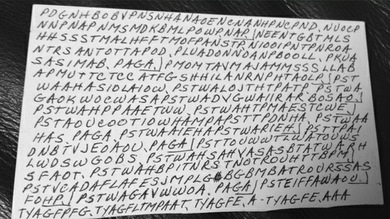 PDGNHBOBVPNSNHANAOENCNANHPNCPND. NUOCP
NNPNAPNMSMDKBMLPOWPNAP) NEENTGBTMLS
HHSSSTMALHFFTMOFPANSTP. NIOOIPNTPNROA
NTRSANTOTTAPOD. PLUADONNDANPBOOLL. PKNA
SASIMAB, PAGA.) PMOMTANMANAMMSSSLLAB
APMUTTCTCCATFGSHHILANRNPHTAOLP) PSTW
WAAHASIOLAIOW, PSTWALOJTHTPATP. PSTWA
GAOKWOCUASAPSTWADVGWHIRARBOSAE.
PSTWAHAPPAAETWW. PSTWAHTPMAESTCWE)
PSTAOUCOOTIOWHAMPAPSTTPDNHA, PSTWAA
HAS. PAGA, PSTWAAIEHAPSTWARIEH) PSTTPAI
DNBTVJEOAOU. PAGA) PSTTOWWWTLWTOUWS
LWDSWGOBS. PSTWAASATVASASBTATWARH
SFAOT. PSTWAHBPITNRSTNOTROUHTTBPM
PSTVCADAFLAFESJIMALGBGBMBATROURSSAS
FOHP) PSTWAGAVWWOA. PAGA) PSTEIFFAWAOU
TYAGFPFG. TYAGFLTMPAAT, TYAGFE, A-TYAGFE, AAA